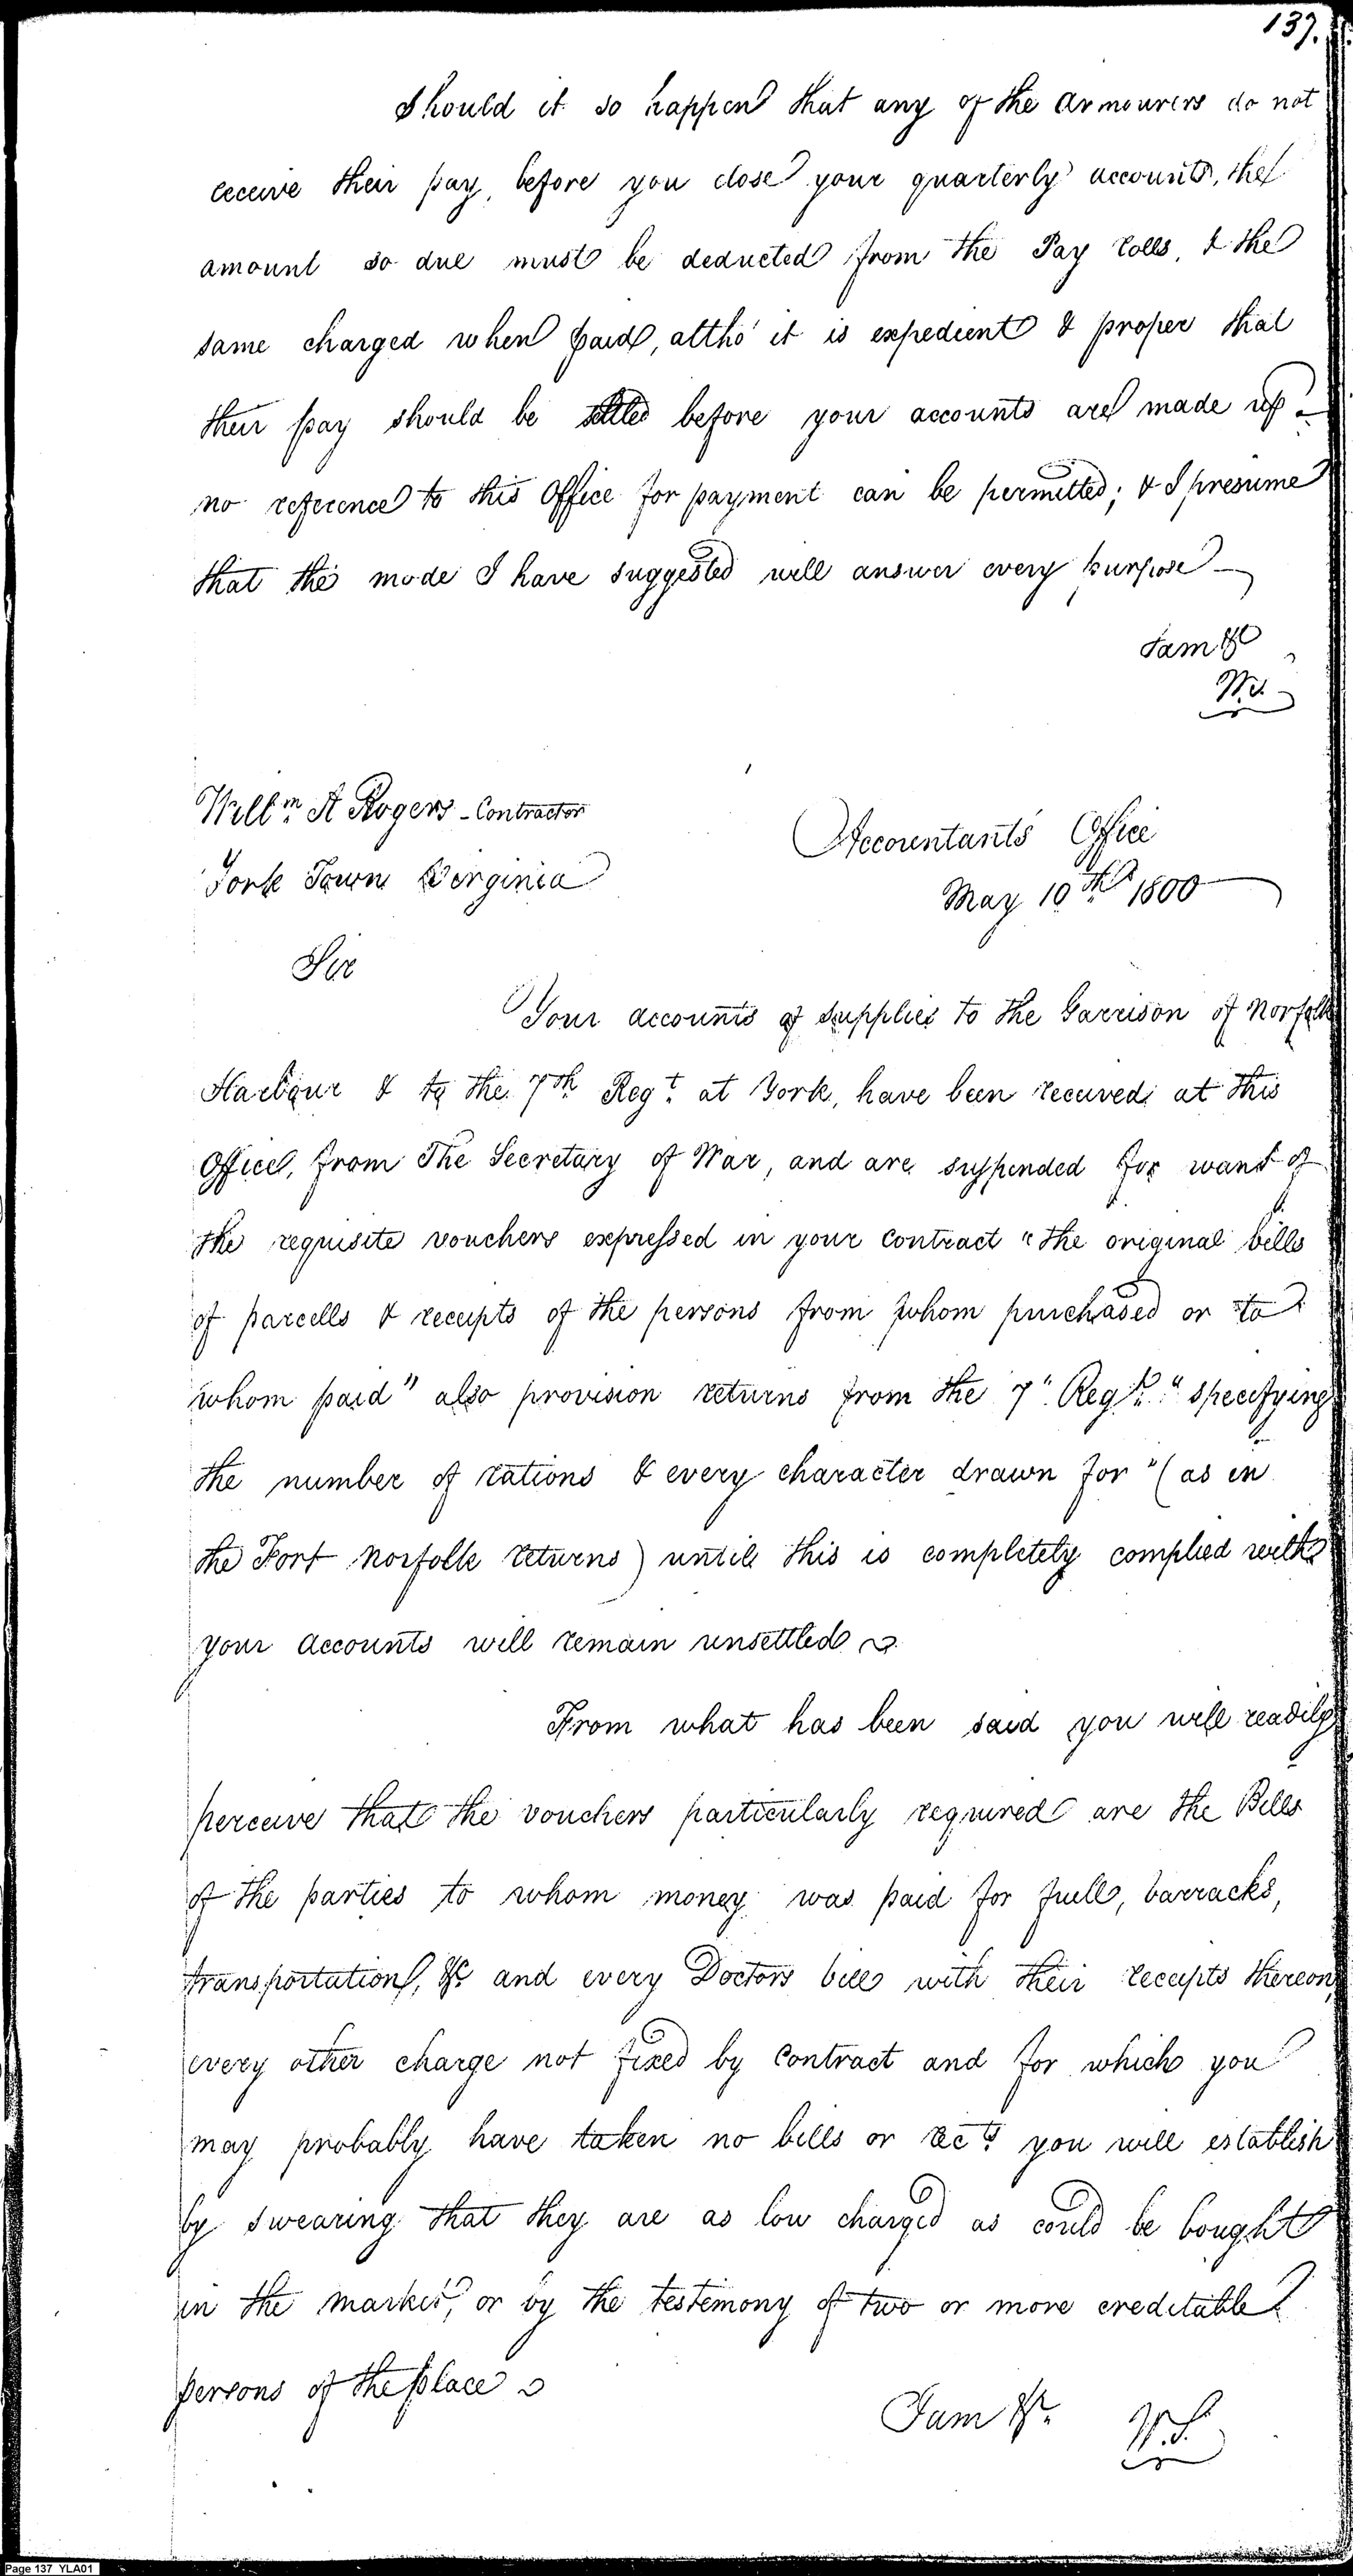 137.
Should it so happen that any of the Armourers do not
receive their pay, before you close your quarterly accounts, the
amount so due must be deducted from the Pay rolls, & the
same charged when paid, altho' it is expedient & proper that
their pay should be settled before your accounts are made up –
no reference to this Office for payment can be permitted; & I presume
that the mode I have suggested will answer every purpose –
I am &c
W.S.
Willm. A Rogers - Contractor
York Town Virginia
Accountants Office
May 10th 1800
Sir
Your accounts of supplies to the Garrison of Norfolk
Harbour & to the 7th Regt. at York, have been received at this
Office, from The Secretary of War, and are suspended for want of
the requisite vouchers expressed in your contract "the original bills
of parcells & receipts of the persons from whom purchased or to
whom paid" also provision returns from the 7" Regt. "specifying
the number of rations & every character drawn for" (as in
the Fort Norfolk returns) until this is completely complied with
your accounts will remain unsettled
From what has been said you will readily
perceive that the vouchers particularly required are the Bills
of the parties to whom money was paid for fuell, barracks,
transportation, &c and every Doctors bill with their receipts thereon,
every other charge not fixed by Contract and for which you
may probably have taken no bills or rects. you will establish
by swearing that they are as low charged as could be bought
in the market, or by the testimony of two or more creditable
persons of the place
I am &c.
W.S.
Page 137 YLA01